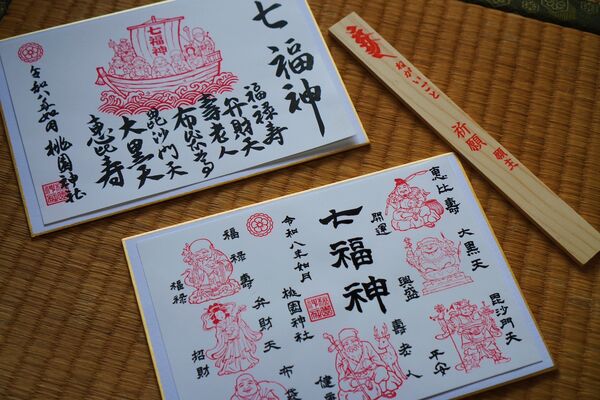 七福神
七福神
福禄寿
弁財天
壽老人
布袋尊
毘沙門天
大黒天
恵比寿
桃園神社
ねがいごと
祈願
願主
恵比寿
開運
大黒天
興盛
毘沙門天
平安
七福神
壽老人
令和八年如月
桃園神社
布袋
弁財天
招財
福禄寿
福禄